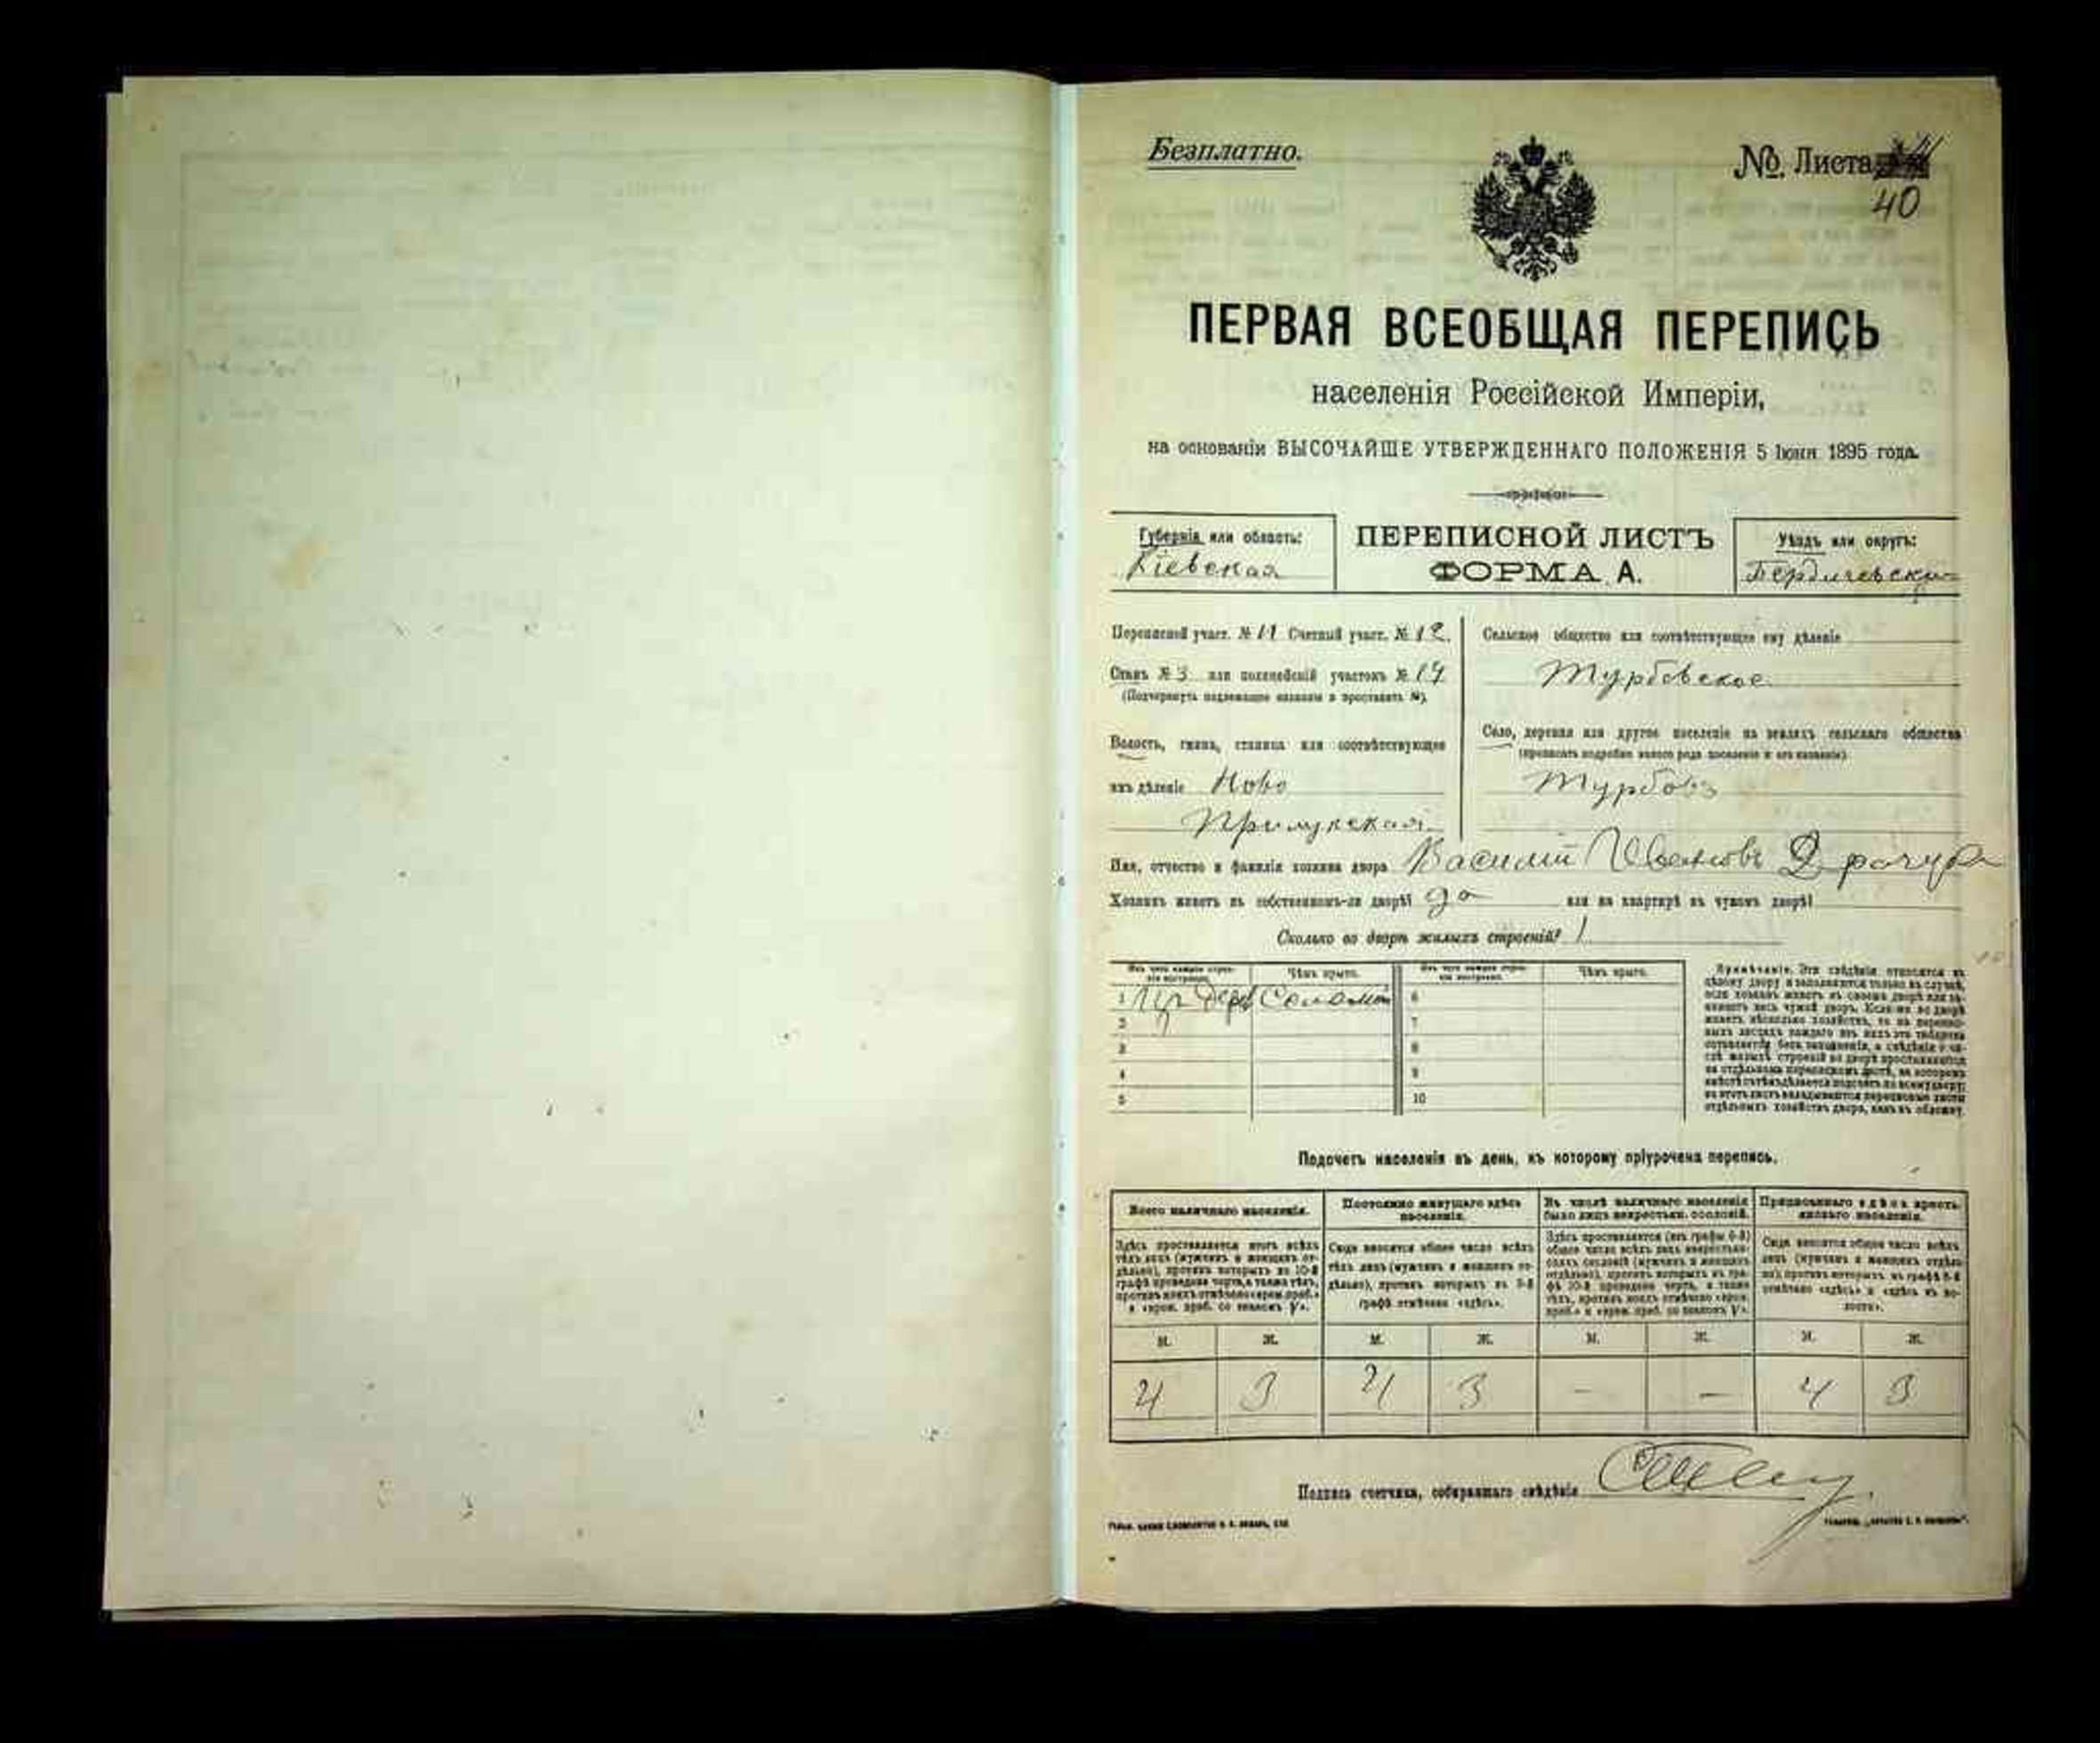 Безплатно.
№ Листа
40
ПЕРВАЯ ВСЕОБЩАЯ ПЕРЕПИСЬ
населенія Россійской Имперіи,
на основаніи ВЫСОЧАЙШЕ УТВЕРЖДЕННАГО ПОЛОЖЕНІЯ 5 Іюня 1895 года.
Губернія или область:
Кіевская
ПЕРЕПИСНОЙ ЛИСТЪ
ФОРМА А.
Уѣздъ или округъ:
Бердичевскій
Переписной участ. № 11 Счетный участ. № 12.
Станъ № 3 или полицейскій участокъ № 14
(Подчеркнуть надлежащее названіе и проставить №).
Волость, гмина, станица или соотвѣтствующее
имъ дѣленіе Ново
Прилукская
Сельское общество или соотвѣтствующее ему дѣленіе
Турбовское
Село, деревня или другое поселеніе на земляхъ сельскаго общества
(прописать подробно какого рода поселеніе и его названіе).
Турбовъ
Имя, отчество и фамилія хозяина двора Василій Ивановъ
Хозяинъ живетъ въ собственномъ-ли дворѣ? да или на квартирѣ въ чужомъ дворѣ?
Сколько во дворѣ жилыхъ строеній? 1
Изъ чего каждое строеніе построено. Чѣмъ крыто. Изъ чего каждое строеніе построено. Чѣмъ крыто.
1 дерев Соломой 6
2 7
3 8
4 9
5 10
Примѣчаніе. Эти свѣдѣнія относятся къ
цѣлому двору и заполняются только въ случаѣ,
если хозяинъ живетъ въ своемъ дворѣ или за-
нимаетъ весь чужой дворъ. Если-же во дворѣ
живетъ нѣсколько хозяйствъ, то на перепис-
ныхъ листахъ каждаго изъ нихъ эта таблица
оставляется безъ заполненія, а свѣдѣнія о чи-
слѣ жилыхъ строеній во дворѣ проставляются
на отдѣльномъ переписномъ листѣ, на которомъ
вмѣстѣ съ тѣмъ дѣлается подсчетъ по всему двору;
въ этотъ листъ вкладываются переписные листы
отдѣльныхъ хозяйствъ двора, какъ въ обложку.
Подсчетъ населенія въ день, къ которому пріурочена перепись.
Всего наличнаго населенія.
Здѣсь проставляется итогъ всѣхъ
тѣхъ лицъ (мужчинъ и женщинъ от-
дѣльно), противъ которыхъ въ 10-й
графѣ проведена черта, а также тѣхъ,
противъ коихъ отмѣчено «врем. преб.»
и «врем. преб. со знакомъ V».
Постоянно живущаго здѣсь
населенія.
Сюда вносится общее число всѣхъ
тѣхъ лицъ (мужчинъ и женщинъ от-
дѣльно), противъ которыхъ въ 9-й
графѣ отмѣчено «здѣсь».
Въ числѣ наличнаго населенія
было лицъ некрестьян. сословій.
Здѣсь проставляется (изъ графы 6-й)
общее число всѣхъ лицъ некрестьян-
скихъ сословій (мужчинъ и женщинъ
отдѣльно), противъ которыхъ въ гра-
фѣ 10-й проведена черта, а также
тѣхъ, противъ коихъ отмѣчено «врем.
преб.» и «врем. преб. со знакомъ V».
Приписаннаго здѣсь кресть-
янскаго населенія.
Сюда вносится общее число всѣхъ
лицъ (мужчинъ и женщинъ отдѣль-
но), противъ которыхъ въ графѣ 8-й
отмѣчено «здѣсь» и «здѣсь въ во-
лости».
М. Ж. М. Ж. М. Ж. М. Ж.
4 3 4 3 — — 4 3
Подпись счетчика, собиравшаго свѣдѣнія